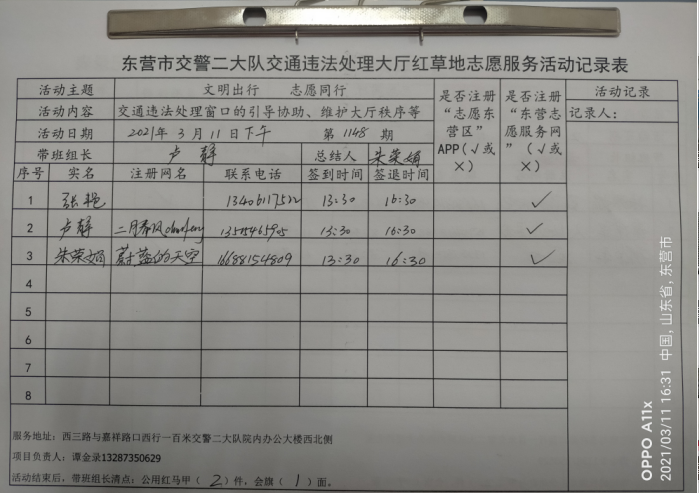 东营市交警二大队交通违法处理大厅红草地志愿服务活动记录表
活动主题 文明出行 志愿同行 是否注册“志愿东营区”APP(√或×) 是否注册“东营志愿服务网”(√或×) 活动记录
活动内容 交通违法处理窗口的引导协助、维护大厅秩序等 记录人：
活动日期 2021年 3月 11日下午 第 1148 期
带班组长 卢静 总结人 朱荣娟
序号 实名 注册网名 联系电话 签到时间 签退时间
1 张艳 13406117522 13:30 16:30 ✓
2 卢静 二月春风 13:30 16:30 ✓
3 朱荣娟 蔚蓝的天空 16688154809 13:30 16:30 ✓
4
5
6
7
8
服务地址：西三路与嘉祥路口西行一百米交警二大队院内办公大楼西北侧
项目负责人：谭金录13287350629
活动结束后，带班组长清点：公用红马甲（2）件，会旗（1）面。
OPPO A11x
2021/03/11 16:31 中国, 山东省, 东营市